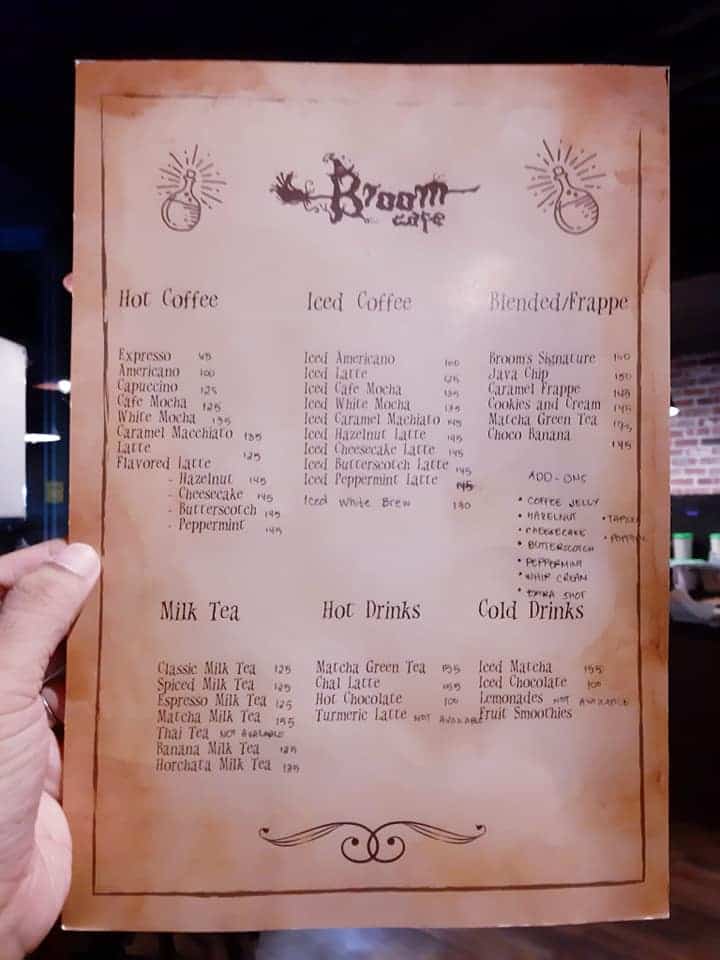 Broom
cafe
Hot Coffee
Expresso
Americano 100
Capuccino 125
Cafe Mocha 125
White Mocha 135
Caramel Macchiato 135
Latte 125
Flavored Latte
- Hazelnut 145
- Cheesecake 145
- Butterscotch 145
- Peppermint 145
Iced Coffee
Iced Americano 100
Iced Latte 125
Iced Cafe Mocha 135
Iced White Mocha 135
Iced Caramel Machiato 145
Iced Hazelnut Latte 145
Iced Cheesecake Latte 145
Iced Butterscotch Latte 145
Iced Peppermint Latte 145
Iced White Brew 130
Blended/Frappe
Broom's Signature
Java Chip 150
Caramel Frappe 145
Cookies and Cream 145
Matcha Green Tea
Choco Banana 145
ADD-ONS
• COFFEE JELLY
• HAZELNUT
• CHEESECAKE
• BUTTERSCOTCH
• PEPPERMINT
• WHIP CREAM
• EXTRA SHOT
Milk Tea
Classic Milk Tea 125
Spiced Milk Tea 125
Espresso Milk Tea 125
Matcha Milk Tea 155
Thai Tea NOT AVAILABLE
Banana Milk Tea 125
Horchata Milk Tea 125
Hot Drinks
Matcha Green Tea 155
Chai Latte 155
Hot Chocolate 100
Turmeric Latte NOT AVAILABLE
Cold Drinks
Iced Matcha 155
Iced Chocolate 100
Lemonades NOT AVAILABLE
Fruit Smoothies